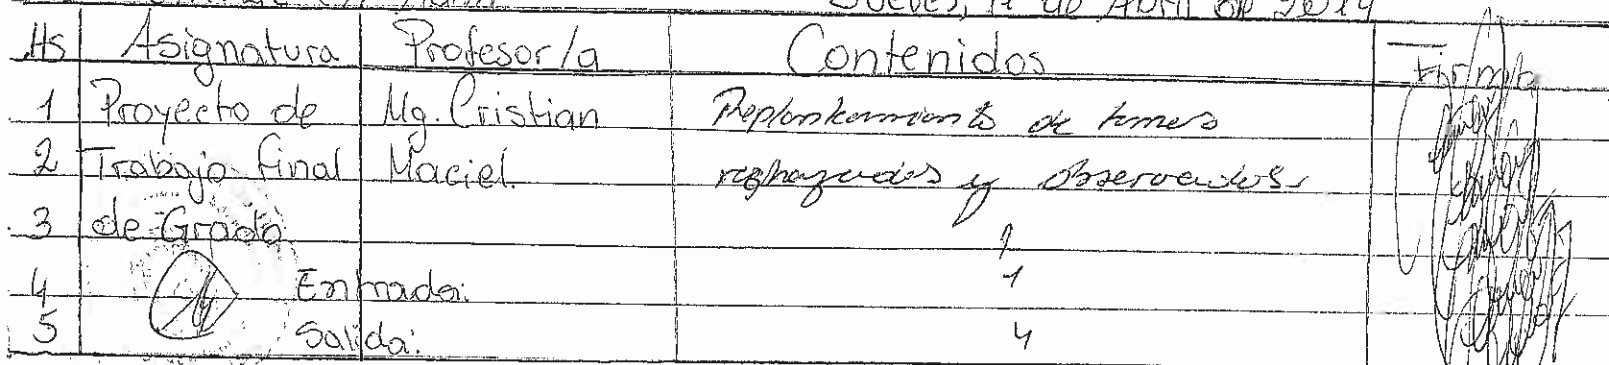 Jueves, 11 de Abril de 2014
Hs Asignatura Profesor/a Contenidos Firma
1 Proyecto de Mg. Cristian Replanteamiento de temas
2 Trabajo final Maciel. rechazados y observados.
3 de Grado
4 Entrada: 1
5 Salida: 4